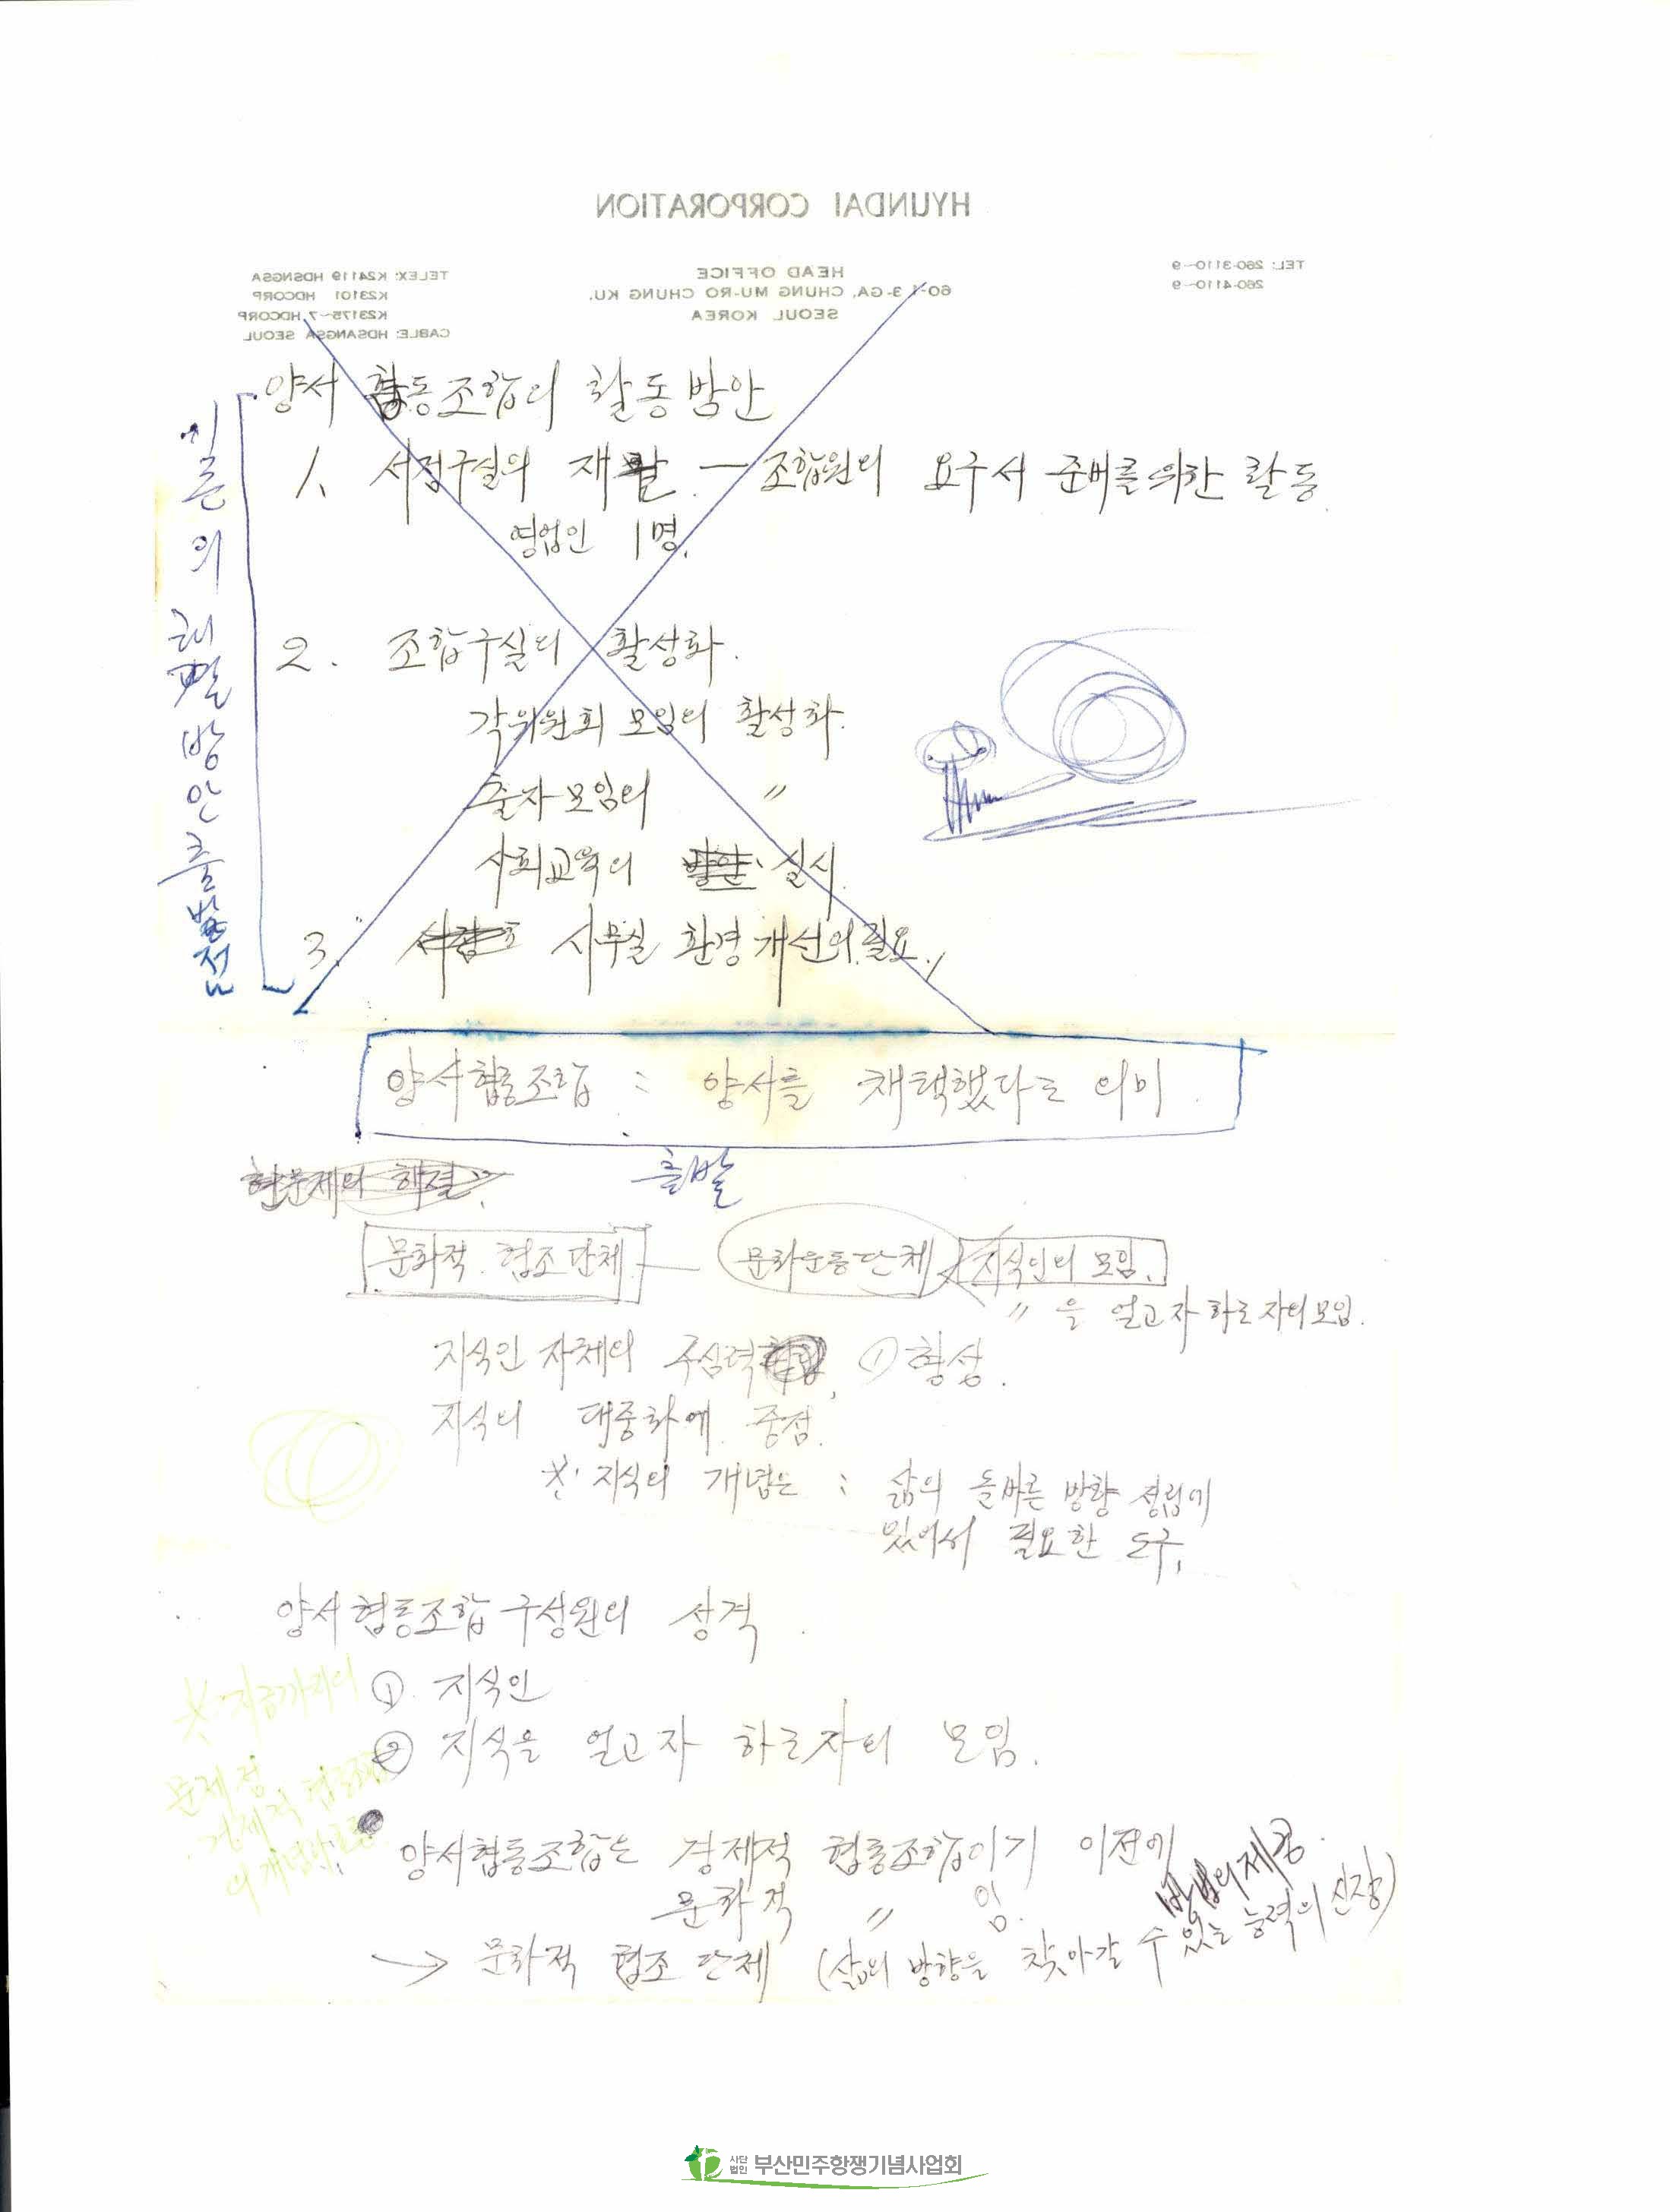 HYUNDAI CORPORATION
TELEX: K24119 HDSNGSA
K23101 HDCORP
K23175~7 HDCORP
CABLE: HDSANGSA SEOUL
HEAD OFFICE
60-1 3-GA, CHUNG MU-RO CHUNG KU.
SEOUL KOREA
TEL: 260-3110~9
260-4110~9
양서 협동조합의 활동방안
1. 서점구실의 재활 - 조합원의 요구서 준비를 위한 활동
영업인 1명.
2. 조합구실의 활성화.
각위원회 모임의 활성화.
출자모임의 〃
사회교육의 방안 실시.
3. 사무실 환경개선의 필요.
방안 출발점
양서협동조합 : 양서를 채택했다는 의미.
출발
현문제의 해결.
문화적 협조단체 — 문화운동단체 지식인의 모임.
〃 을 얻고자 하는 자의 모임.
지식인 자체의 구심력 ① 형성.
지식의 대중화에 중점.
※ 지식의 개념은 : 삶의 올바른 방향 정립에
있어서 필요한 도구.
양서협동조합 구성원의 성격.
① 지식인
② 지식을 얻고자 하는자의 모임.
※ 지금까지의
문제점
경제적 협동조합
의 개념
양서협동조합은 경제적 협동조합이기 이전에
문화적 〃 임.
→ 문화적 협조 단체 (삶의 방향을 찾아갈 수 있는 능력의 신장)
방법의 제공.
사단법인 부산민주항쟁기념사업회